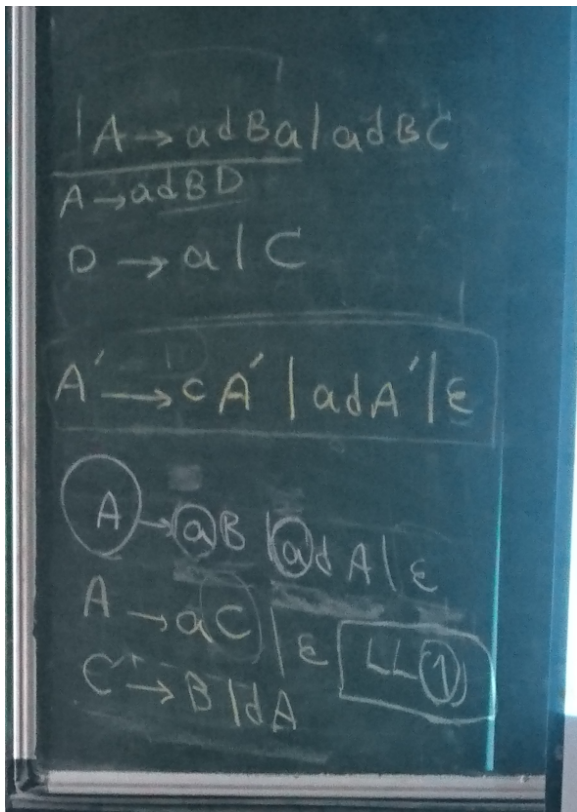 A → adBa | adBC
A → adBD
D → a | C
A' → cA' | adA' | ε
A → aB | adA | ε
A → aC | ε LL(1)
C → B | dA